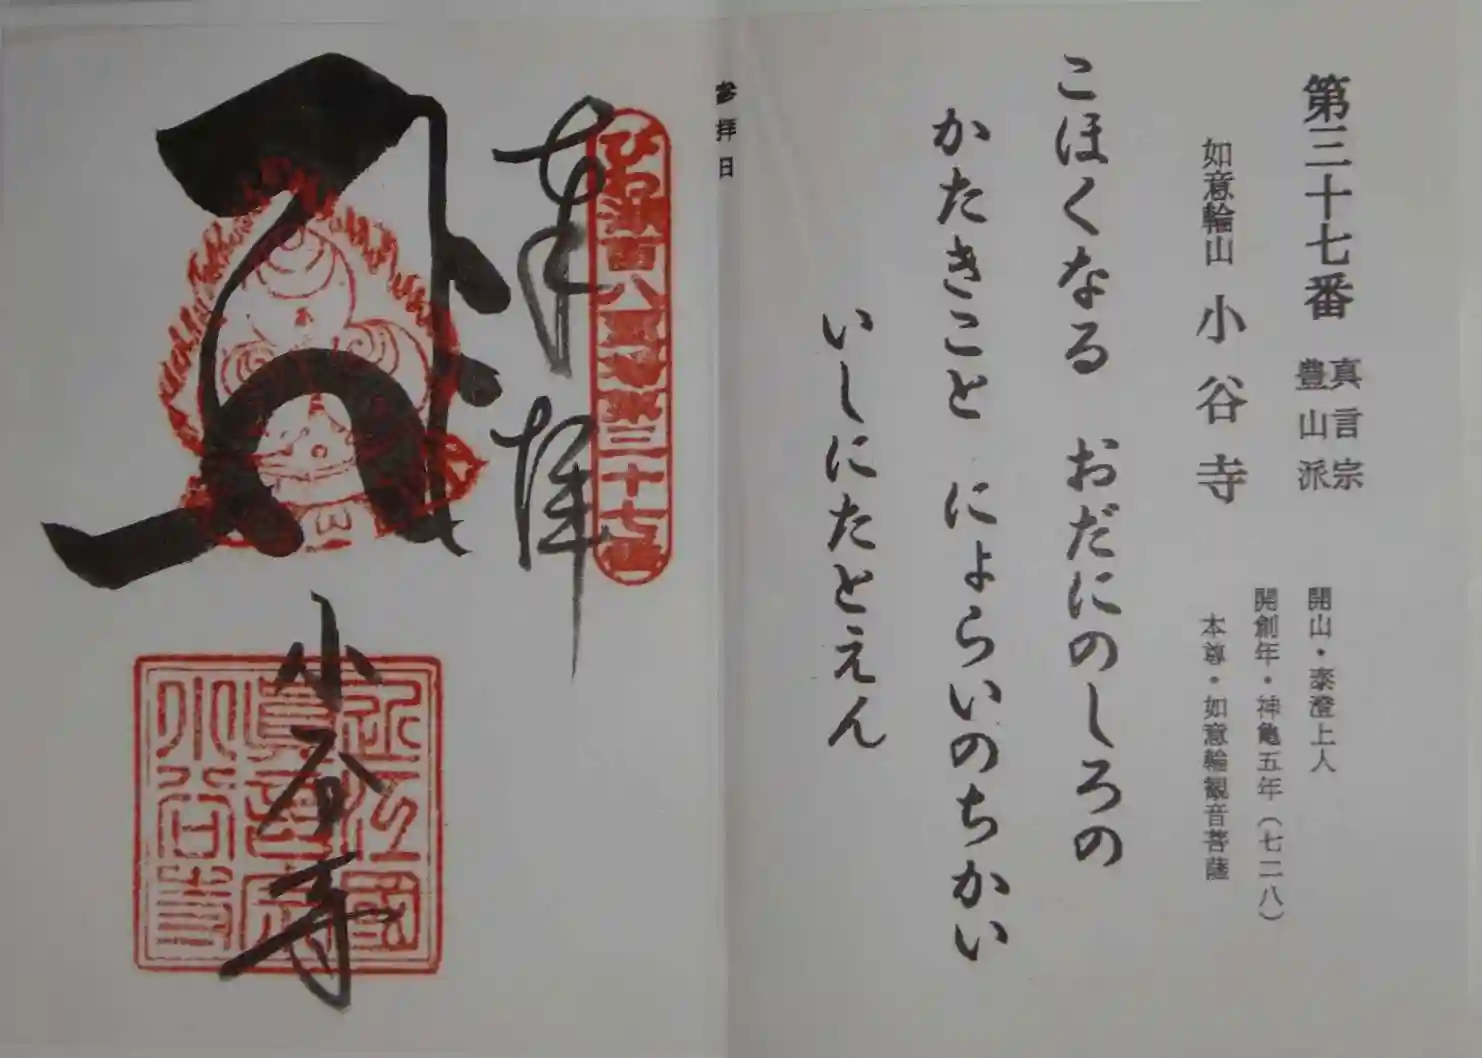 第三十七番
真言宗
豊山派
如意輪山 小谷寺
開山・泰澄上人
開創年・神亀五年(七二八)
本尊・如意輪観音菩薩
こほくなる おだにのしろの
かたきこと によらいのちかい
いしにたとえん
参拝日
奉拝
びわ湖百八霊場第三十七番
小谷寺